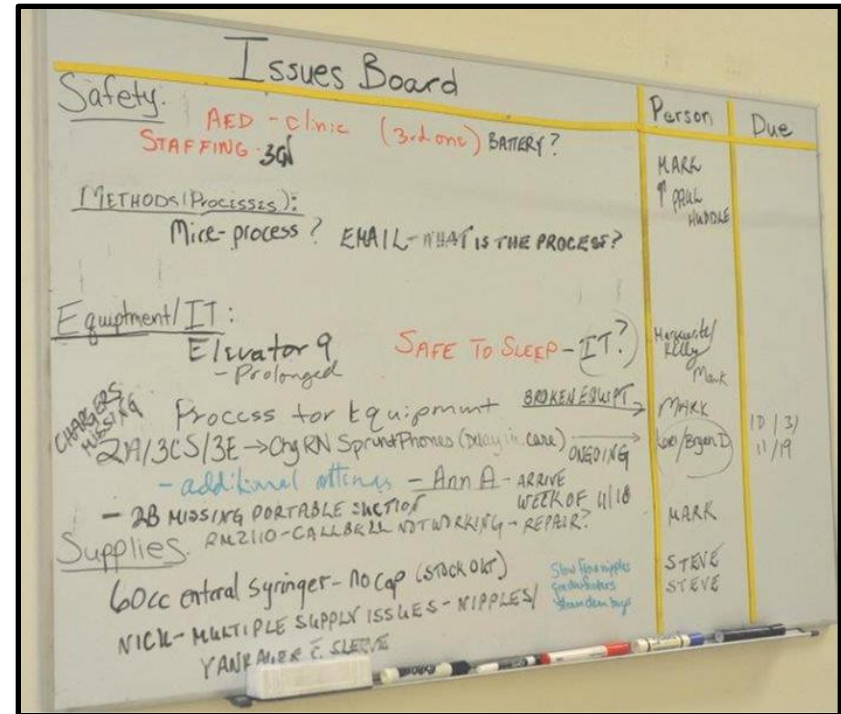 Issues Board
Person
Due
Safety.
AED - Clinic (3rd one) BATTERY?
STAFFING - 3GN
MARK
↑ PAUL
HUDDLE
METHODS/(Processes):
Mice-process? EMAIL-WHAT IS THE PROCESS?
Equiptment/IT:
Elevator 9
- Prolonged
SAFE TO SLEEP - IT?
Marguerite/
Kelly
Mark
CHARGERS
MISSING
Process for Equipment BROKEN EQUIPT → MARK
2A/3CS/3E → Chg RN Sprint Phones (Delay in care) → ONGOING
/Bryan D
10/31
11/19
- additional - Ann A - ARRIVE
WEEK OF 11/18
- 2B MISSING PORTABLE SUCTION
RM2110-CALLBELL NOT WORKING - REPAIR?
MARK
Supplies.
60cc enteral syringer - no cap (STOCK OUT)
STEVE
NICU-MULTIPLE SUPPLY ISSUES - NIPPLES/
Slow flow nipples
STEVE
YANKAUER C. SLEEVE